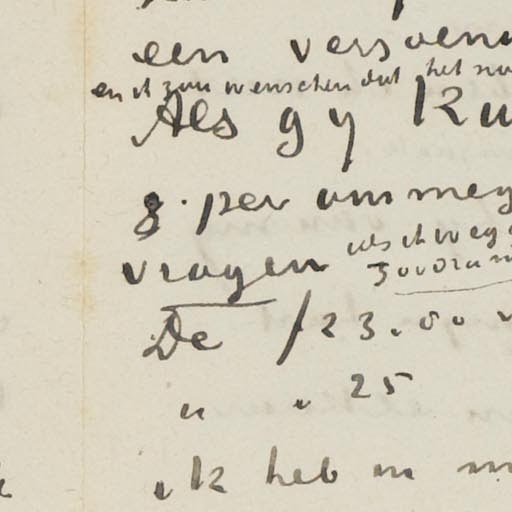 een verzoening
en ik zou wenschen dat het
Als gy
8. per ommeg
als ik weg
vragen zoodra
De f 23.00
" " 25
ik heb in m